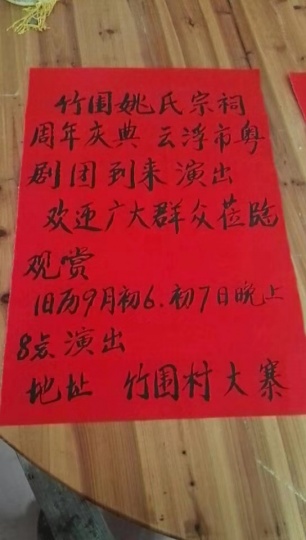 竹围姚氏宗祠
周年庆典 云浮市粤
剧团到来演出
欢迎广大群众莅临
观赏
旧历9月初6.初7日晚上
8点演出
地址 竹围村大寨